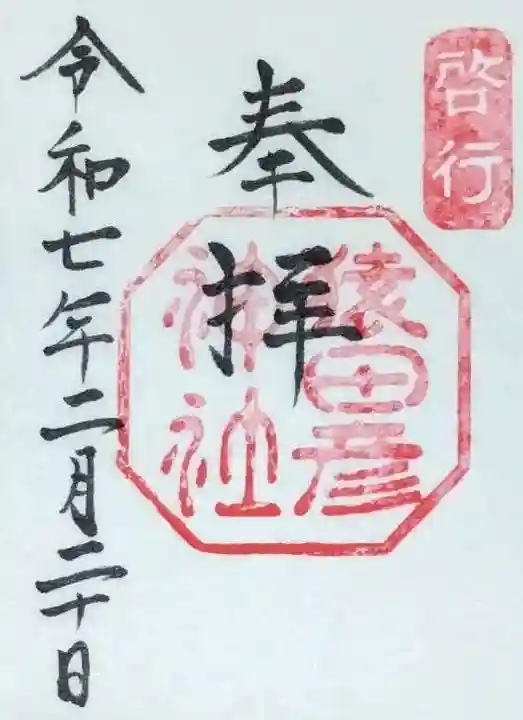 啓行
奉拝
猿田彦
神社
令和七年二月二十日